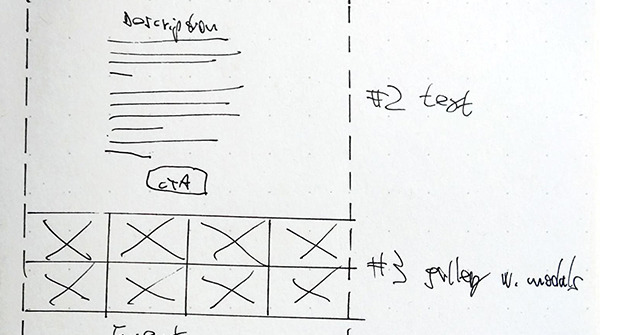 Description
#2 text
CTA
#3 gallery w. modals